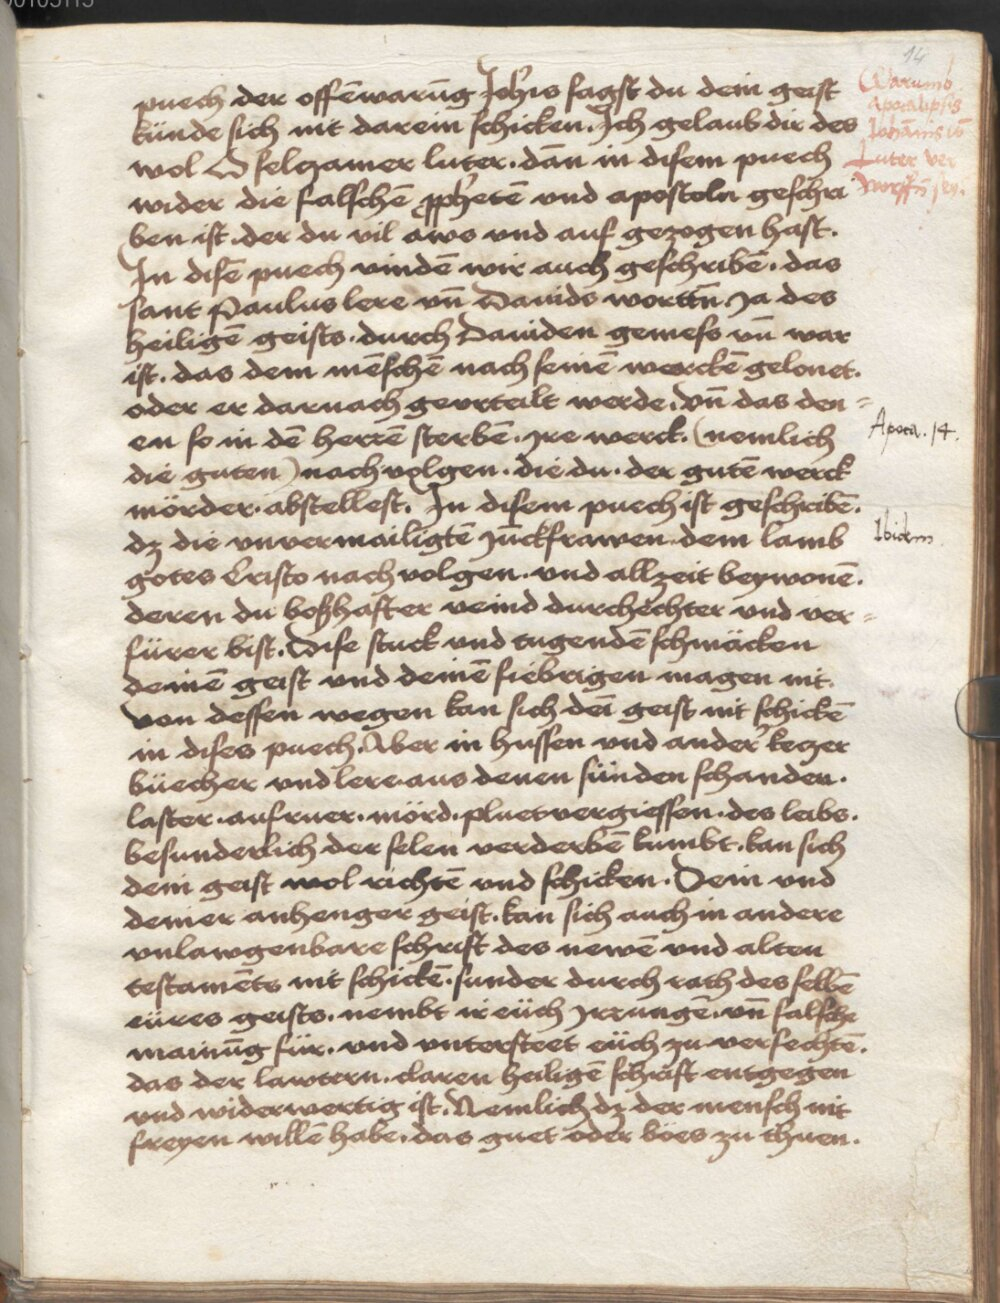 14
puech der offēwarūg Joh̄is sagst du dein geist
künde sich nit darein schicken. Ich gelaub dir des
wol O selczamer luter. dān in disem puech
wider die falschē ꝓphetē vnd apostoln geschri
ben ist. der du vil aws vnd auf gezogen hast.
In disē puech vindē wir auch geschribē. das
sant Paulus lere vn̄ Dauids wortn̄. Ja des
heiligē geists. durch Dauiden gemess vn̄ war
ist. das dem mēschē nach seinē werckē gelonet.
oder er darnach gevrteilt werde. Vn̄ das den=
en so in dē herrē sterbē. ire werck. (nemlich
die guten) nachvolgen. die du. der gutē werck
mörder. abstellest. In disem puech ist geschribē.
dz die vnvermailigtē Jūckfrawen. dem lamb
gotes Cristo nach volgen. vnd allzeit beywonē.
deren du boßhafter veind durchechter vnd ver=
fürer bist. Dise stuck vnd tugendē schmäcken
deinē geist vnd deinē fiebrigen magen nit.
von dessen wegen kan sich deī geist nit schickē
in dises puech. Aber in hussen vnd ander keczer
büecher vnd lere. aus denen sünden schanden.
laster. aufruer. mörd. pluetvergiessen. des leibs.
besunderlich der selen verderbē kumbt. kan sich
dein geist wol richtē vnd schicken. Dein vnd
deiner anhenger geist. kan sich auch in andere
vnlawgenbare schrift des newē vnd alten
testamēts nit schickē. sunder durch rath des selbē
eüres geists. nembt ir eüch Jrrungē. vn̄ falsche
mainūg für. vnd vntersteet eüch zu verfechtē.
das der lawtern. claren heiligē schrift entgegen
vnd widerwertig ist. Nemlich dz der mensch nit
freyen willē habe. das guet oder böes zu thuen.
Warumb
apocalipsis
Johānis vō
Luter ver
worffē sey.
Apoca. 14.
Ibidem